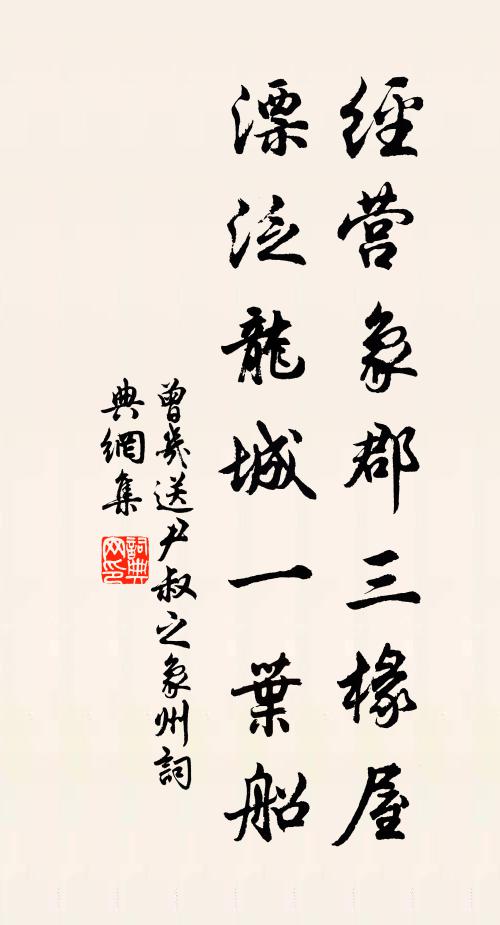 經營象郡三椽屋
漂泛龍城一葉船
曾幾送尹叔之象州詞
典網集
詞典網印